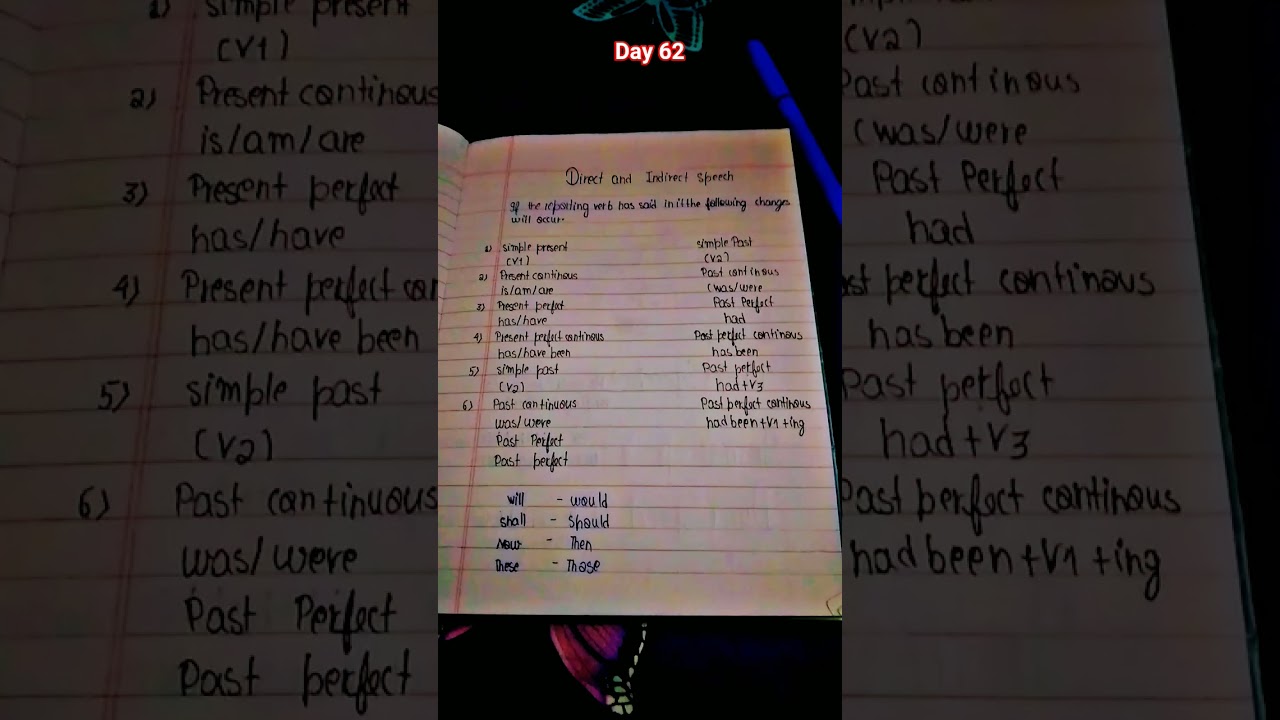 Day 62
Direct and Indirect speech
If the reporting verb has said in it the following changes
will occur.
1) simple present simple Past
(V1) (V2)
2) Present continous Past continous
is/am/are (was/were
3) Present perfect Past Perfect
has/have had
4) Present perfect continous Past perfect continous
has/have been has been
5) simple past Past perfect
(V2) had+V3
6) Past continuous Past perfect continous
was/were had been+V1+ing
Past Perfect
Past perfect
will - would
shall - Should
Now - Then
These - Those